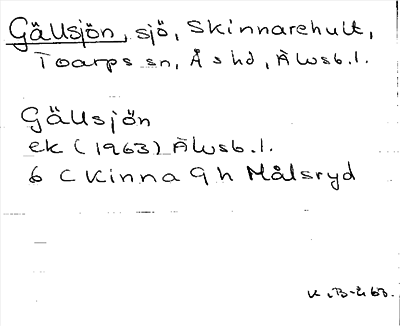 Gällsjön, sjö, Skinnarehult,
Toarps sn, Ås hd, Älvsb. l.
Gällsjön
ek (1963) Älvsb. l.
6 C Kinna 9 h Målsryd